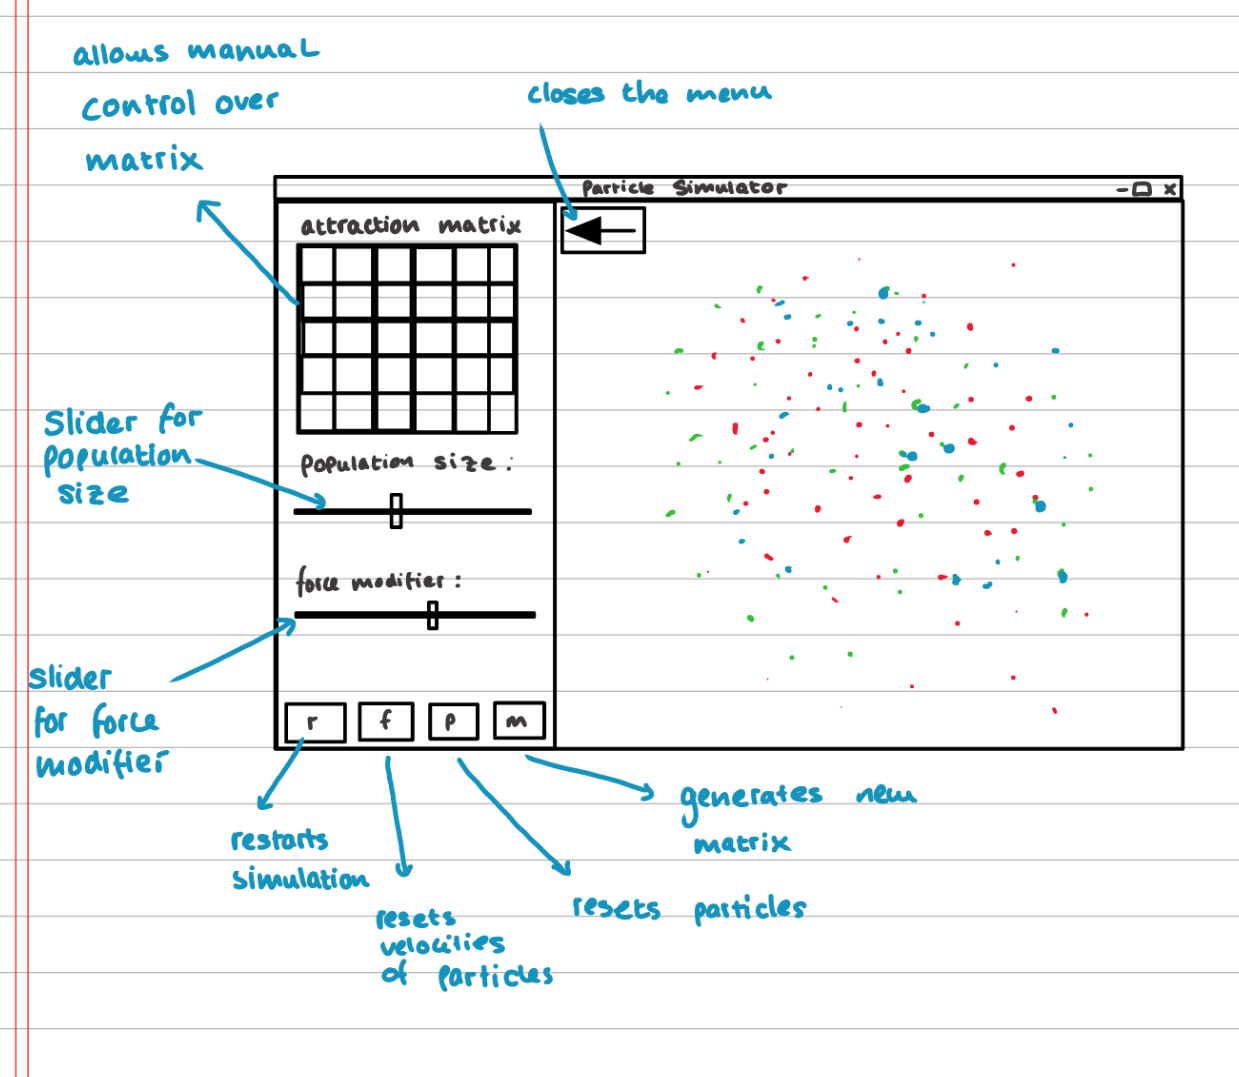 allows manual
control over
matrix
closes the menu
Particle Simulator
attraction matrix
Slider for
population
size
population size :
force modifier :
slider
for force
modifier
r f p m
restarts
simulation
resets
velocities
of particles
resets particles
generates new
matrix